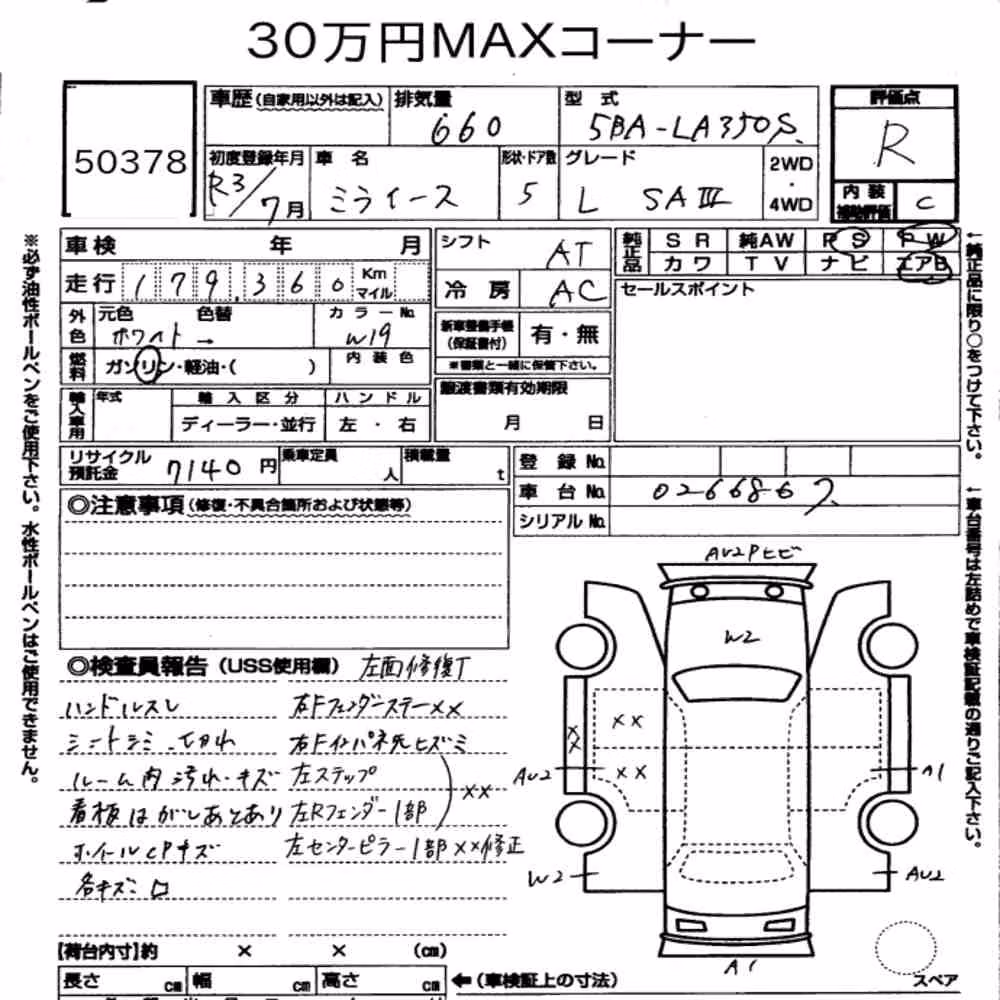 30万円MAXコーナー
50378
車歴(自家用以外は記入) 排気量 660 型式 5BA-LA350S
評価点 R
初度登録年月 R3/7月 車名 ミライース 形状・ドア数 5 グレード L SAⅢ 2WD・4WD
内装補助評価 C
車検 年 月
シフト AT
純正品 SR 純AW PS PW
カワ TV ナビ エアB
走行 179,360 Km マイル
冷房 AC
セールスポイント
外色 元色 ホワイト → 色替 カラーNo. W19
新車整備手帳(保証書付) 有・無
※書類と一緒に保管下さい。
燃料 ガソリン・軽油・( ) 内装色
譲渡書類有効期限
月 日
輸入車用 年式 輸入区分 ハンドル
ディーラー・並行 左・右
リサイクル預託金 7140円 乗車定員 人 積載量 t
登録No.
車台No. 0266867
シリアルNo.
◎注意事項(修復・不具合箇所および状態等)
◎検査員報告(USS使用欄) 左面修復丁
ハンドルスレ 右Fフェンダーステー××
シートシミ・切れ 右Fインパネ先ヒズミ
ルーム内汚れ・キズ 左ステップ
看板はがしあとあり 左Rフェンダー1部 ××
ホイールCPキズ 左センターピラー1部××修正
各キズミロ
AU2Pヒビ
W2
××
××
××
AU2
A1
W2
AU2
A1
スペア
【荷台内寸】約 × × (cm)
長さ cm 幅 cm 高さ cm ←(車検証上の寸法)
※必ず油性ボールペンをご使用下さい。水性ボールペンはご使用できません。
←純正品に限り○をつけて下さい。
←車台番号は左詰めで車検証記載の通りご記入下さい。